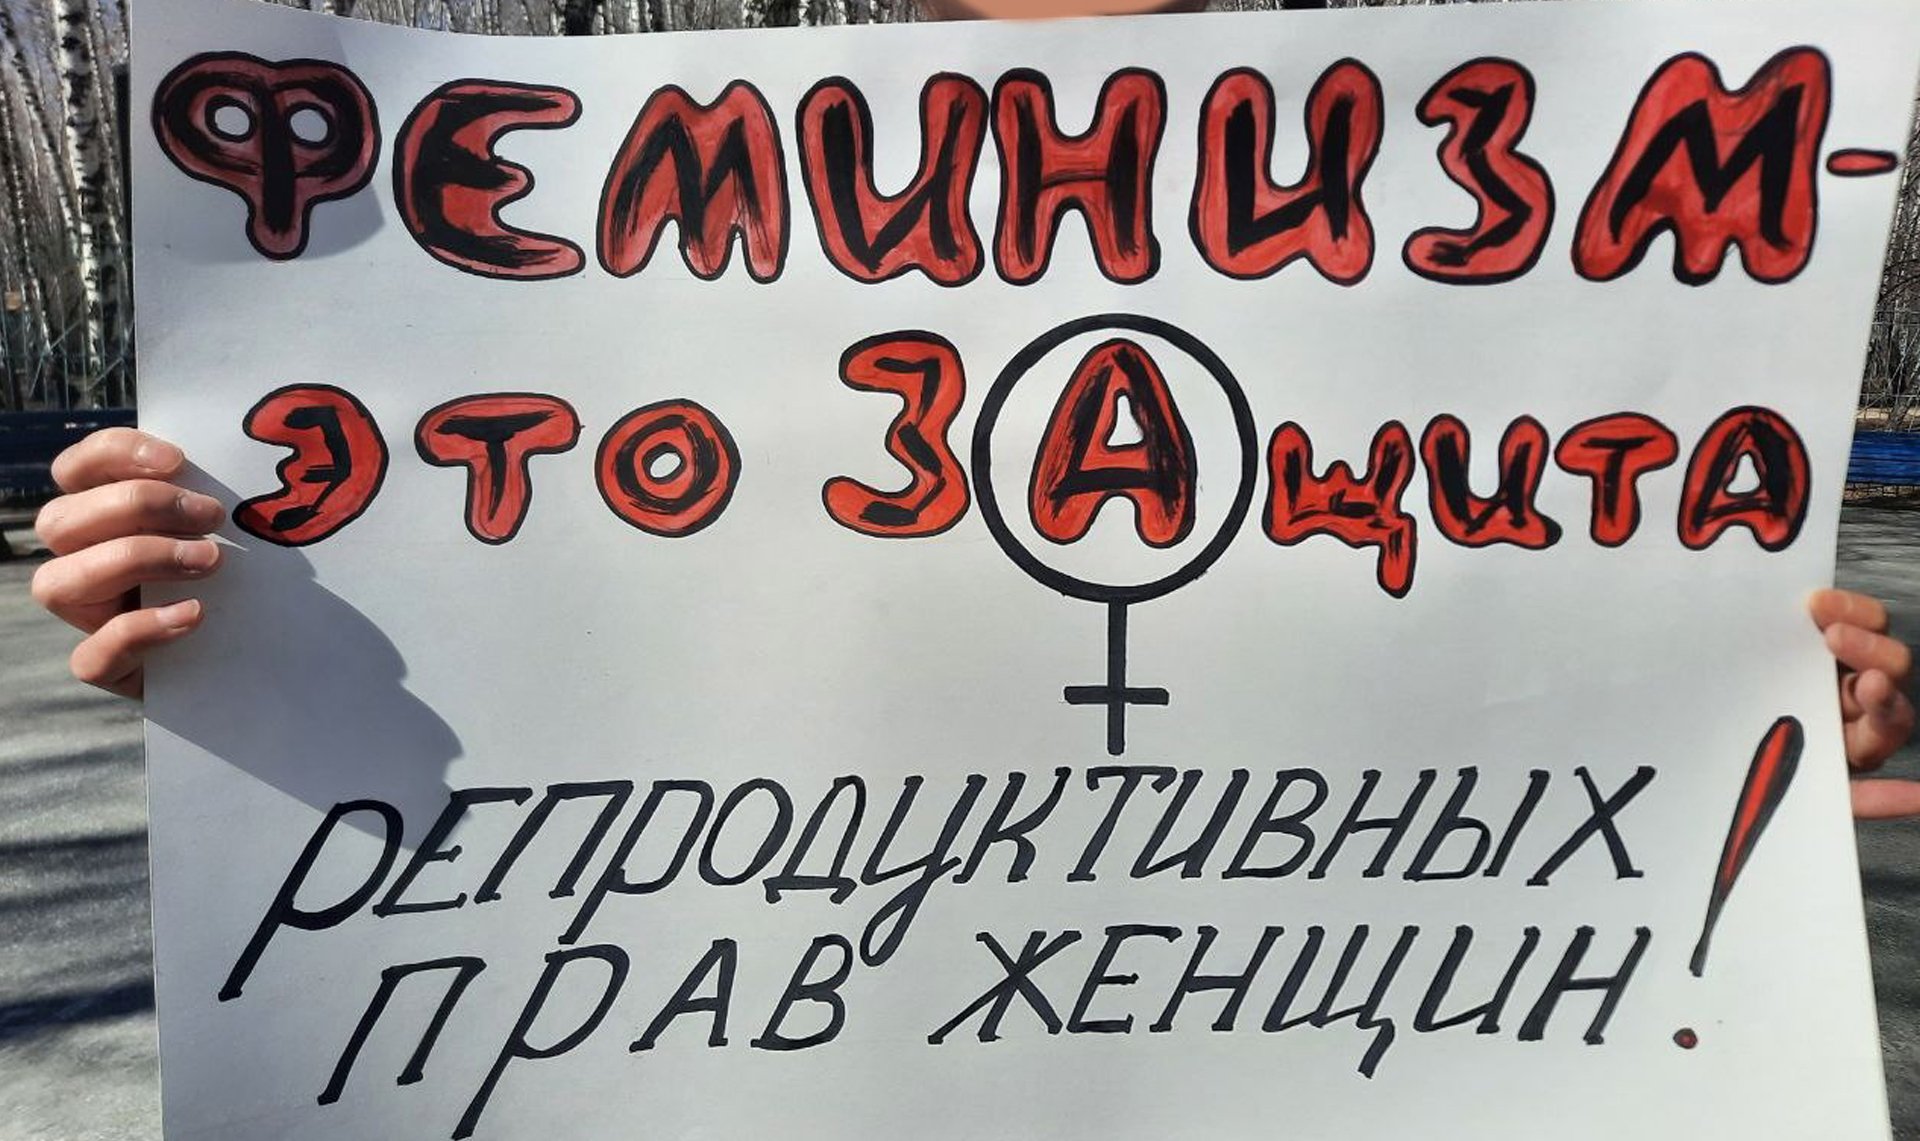 ФЕМИНИЗМ-
ЭТО ЗАЩИТА
РЕПРОДУКТИВНЫХ
ПРАВ ЖЕНЩИН!